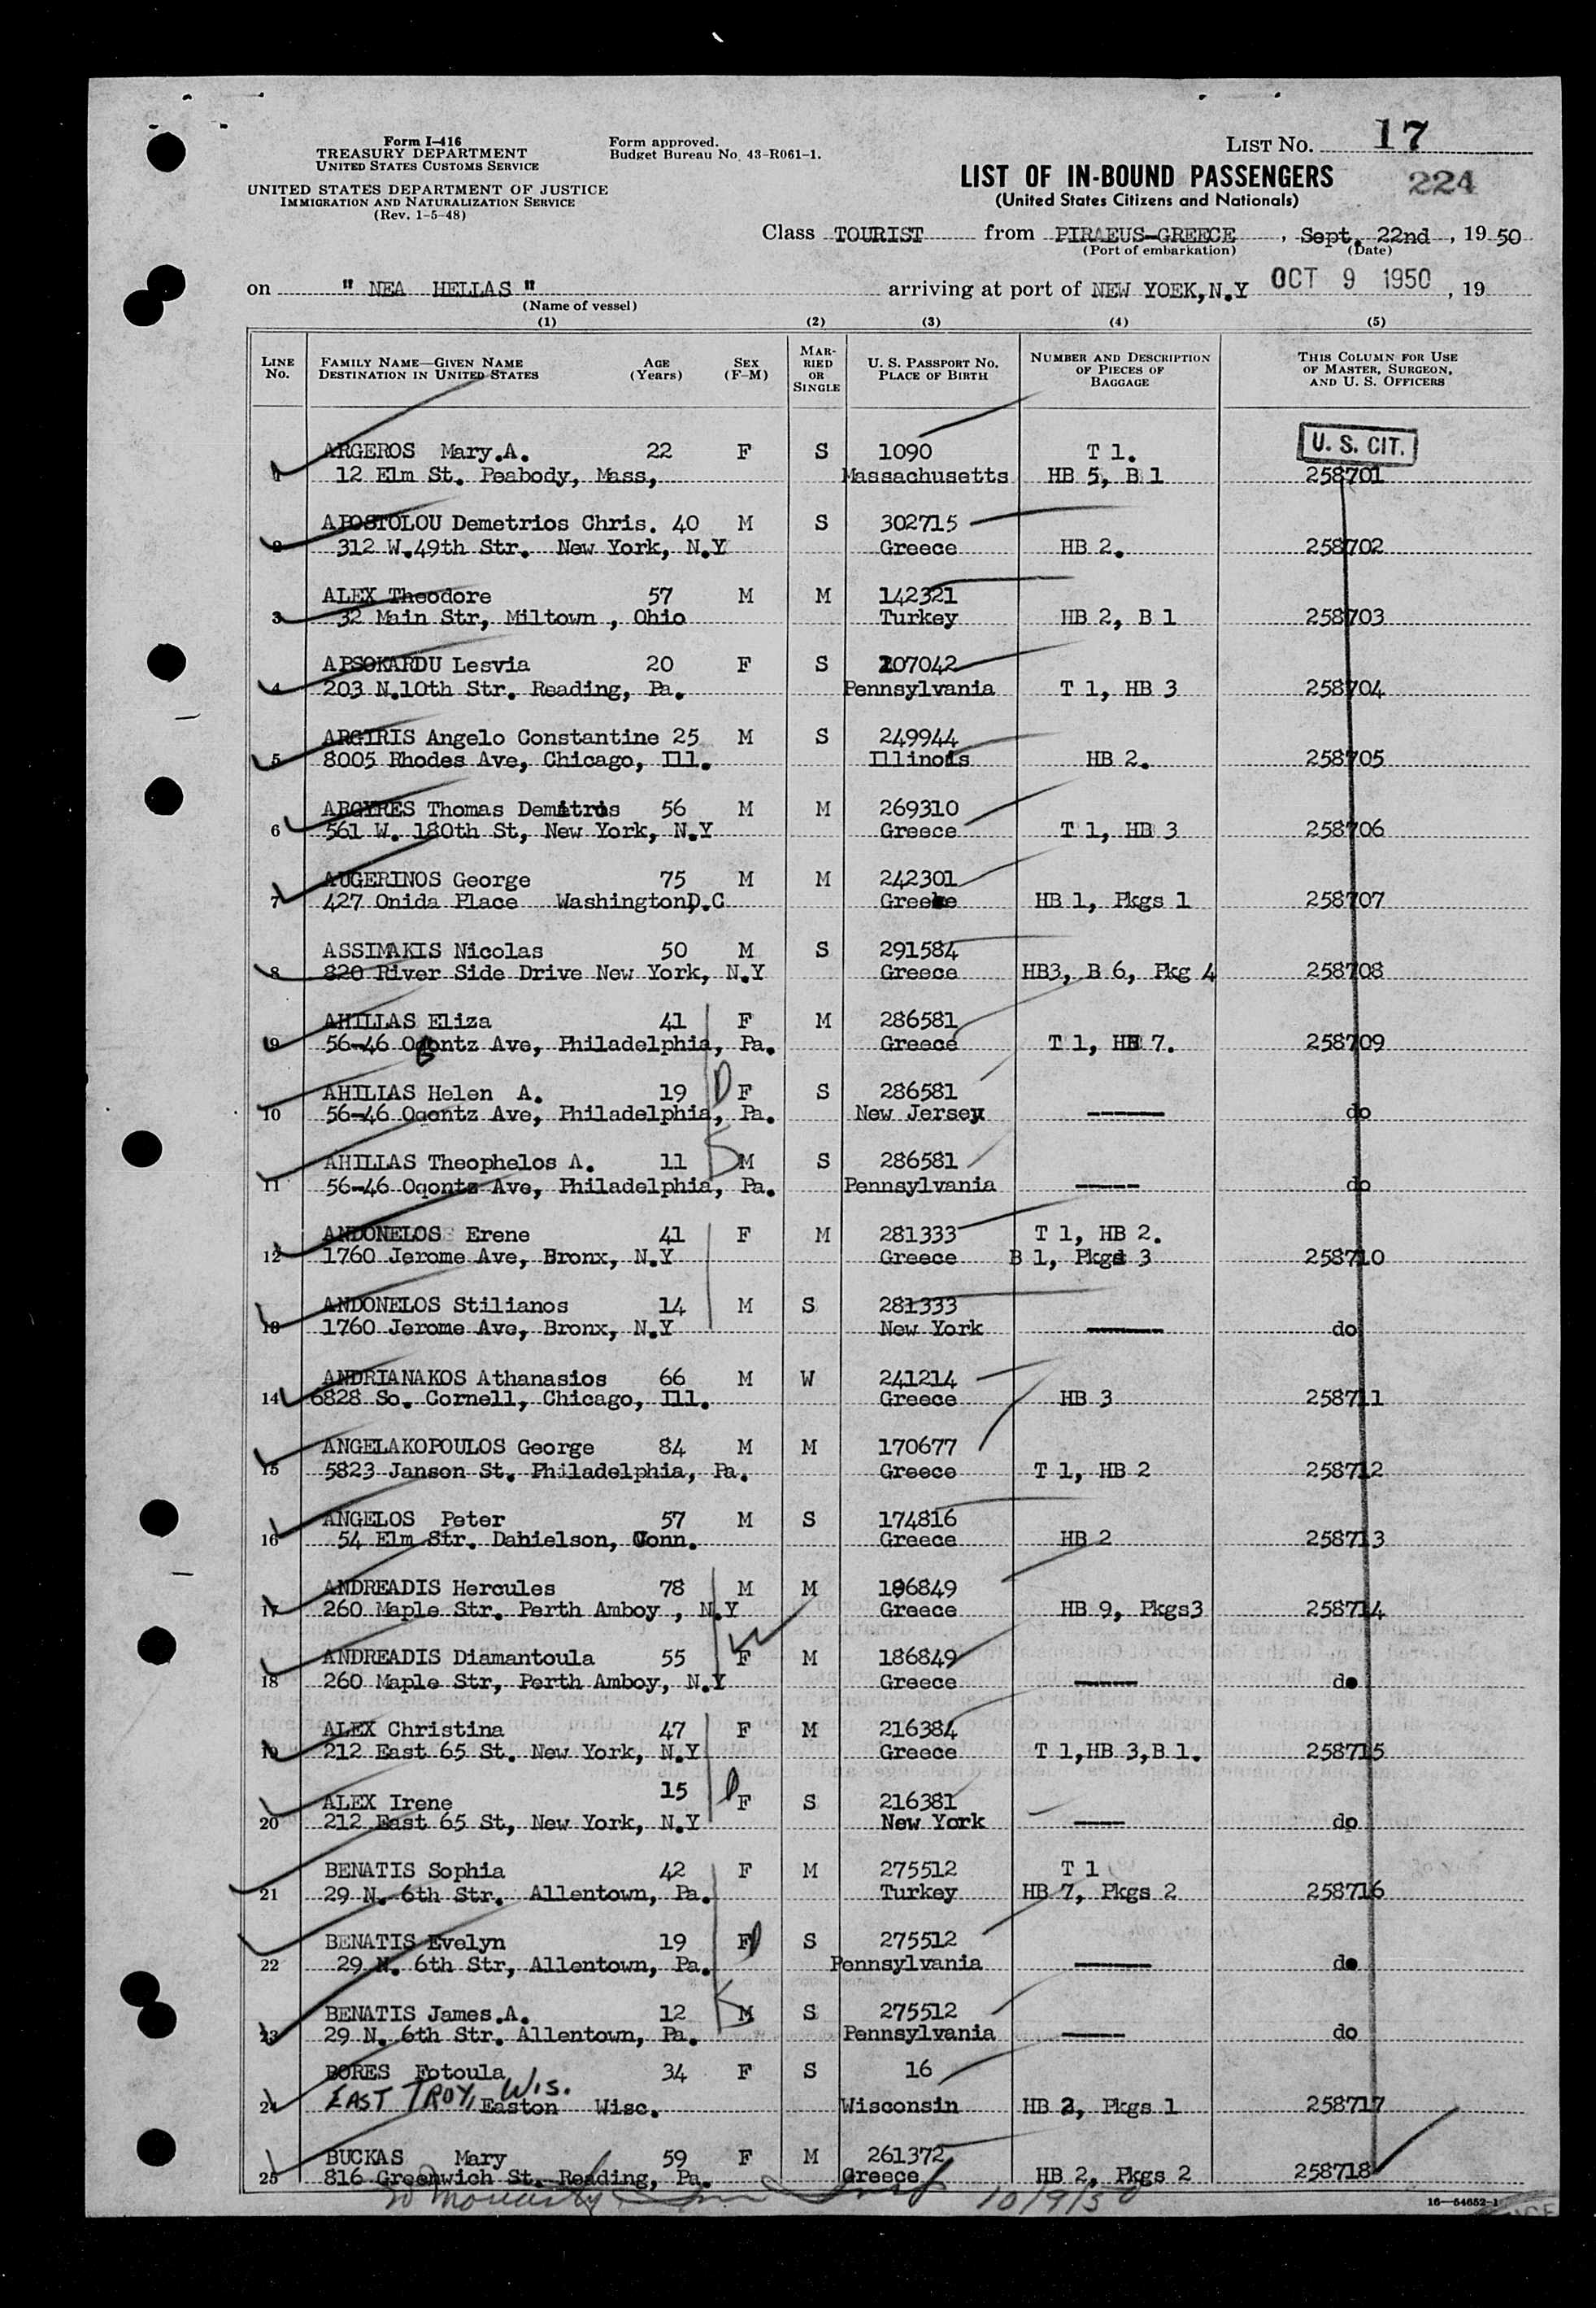 Form I-416
TREASURY DEPARTMENT
UNITED STATES CUSTOMS SERVICE
UNITED STATES DEPARTMENT OF JUSTICE
IMMIGRATION AND NATURALIZATION SERVICE
(Rev. 1-5-48)
Form approved.
Budget Bureau No. 43-R061-1.
LIST No. 17
LIST OF IN-BOUND PASSENGERS
224
(United States Citizens and Nationals)
Class TOURIST from PIRAEUS-GREECE, Sept. 22nd, 19 50
(Port of embarkation) (Date)
on " NEA HELLAS " arriving at port of NEW YOEK,N.Y OCT 9 1950, 19
(Name of vessel)
(1) (2) (3) (4) (5)
LINE No. FAMILY NAME—GIVEN NAME DESTINATION IN UNITED STATES AGE (Years) SEX (F-M) MARRIED OR SINGLE U. S. PASSPORT NO. PLACE OF BIRTH NUMBER AND DESCRIPTION OF PIECES OF BAGGAGE THIS COLUMN FOR USE OF MASTER, SURGEON, AND U. S. OFFICERS
ARGEROS Mary.A. 22 F S 1090 T 1. U. S. CIT.
1 12 Elm St. Peabody, Mass, Massachusetts HB 5, B 1 258701
APOSTOLOU Demetrios Chris. 40 M S 302715
2 312 W.49th Str. New York, N.Y Greece HB 2. 258702
ALEX Theodore 57 M M 142321
3 32 Main Str, Miltown , Ohio Turkey HB 2, B 1 258703
APSOKARDU Lesvia 20 F S 207042
4 203 N.10th Str. Reading, Pa. Pennsylvania T 1, HB 3 258704
ARGIRIS Angelo Constantine 25 M S 249944
5 8005 Rhodes Ave, Chicago, Ill. Illinois HB 2. 258705
ARGYRES Thomas Demitrios 56 M M 269310
6 561 W. 180th St, New York, N.Y Greece T 1, HB 3 258706
AUGERINOS George 75 M M 242301
7 427 Onida Place Washington,D.C Greece HB 1, Pkgs 1 258707
ASSIMAKIS Nicolas 50 M S 291584
8 820 River Side Drive New York, N.Y Greece HB3, B 6, Pkg 4 258708
AHILLAS Eliza 41 F M 286581
9 56-46 Ogontz Ave, Philadelphia, Pa. Greece T 1, HB 7. 258709
AHILIAS Helen A. 19 F S 286581
10 56-46 Oqontz Ave, Philadelphia, Pa. New Jersey ------ do
AHILLAS Theophelos A. 11 M S 286581
11 56-46 Oqontz Ave, Philadelphia, Pa. Pennsylvania ----- do
ANDONELOS Erene 41 F M 281333 T 1, HB 2.
12 1760 Jerome Ave, Bronx, N.Y Greece B 1, Pkgs 3 258710
ANDONELOS Stilianos 14 M S 281333
13 1760 Jerome Ave, Bronx, N.Y New York ------ do
ANDRIANAKOS Athanasios 66 M W 241214
14 6828 So. Cornell, Chicago, Ill. Greece HB 3 258711
ANGELAKOPOULOS George 84 M M 170677
15 5823 Janson St. Philadelphia, Pa. Greece T 1, HB 2 258712
ANGELOS Peter 57 M S 174816
16 54 Elm Str. Danielson, Conn. Greece HB 2 258713
ANDREADIS Hercules 78 M M 186849
17 260 Maple Str. Perth Amboy , N.Y Greece HB 9, Pkgs3 258714
ANDREADIS Diamantoula 55 F M 186849
18 260 Maple Str, Perth Amboy, N.Y Greece ----- do
ALEX Christina 47 F M 216384
19 212 East 65 St. New York, N.Y Greece T 1,HB 3,B 1. 258715
ALEX Irene 15 F S 216381
20 212 East 65 St, New York, N.Y New York ---- do
BENATIS Sophia 42 F M 275512 T 1
21 29 N. 6th Str. Allentown, Pa. Turkey HB 7, Pkgs 2 258716
BENATIS Evelyn 19 F S 275512
22 29 N. 6th Str, Allentown, Pa. Pennsylvania ------ do
BENATIS James.A. 12 M S 275512
23 29 N. 6th Str. Allentown, Pa. Pennsylvania ----- do
BORES Fotoula 34 F S 16
24 EAST TROY, Wis. Easton Wisc. Wisconsin HB 2, Pkgs 1 258717
BUCKAS Mary 59 F M 261372
25 816 Greenwich St. Reading, Pa. Greece HB 2, Pkgs 2 258718
10/9/50
16—54652-1